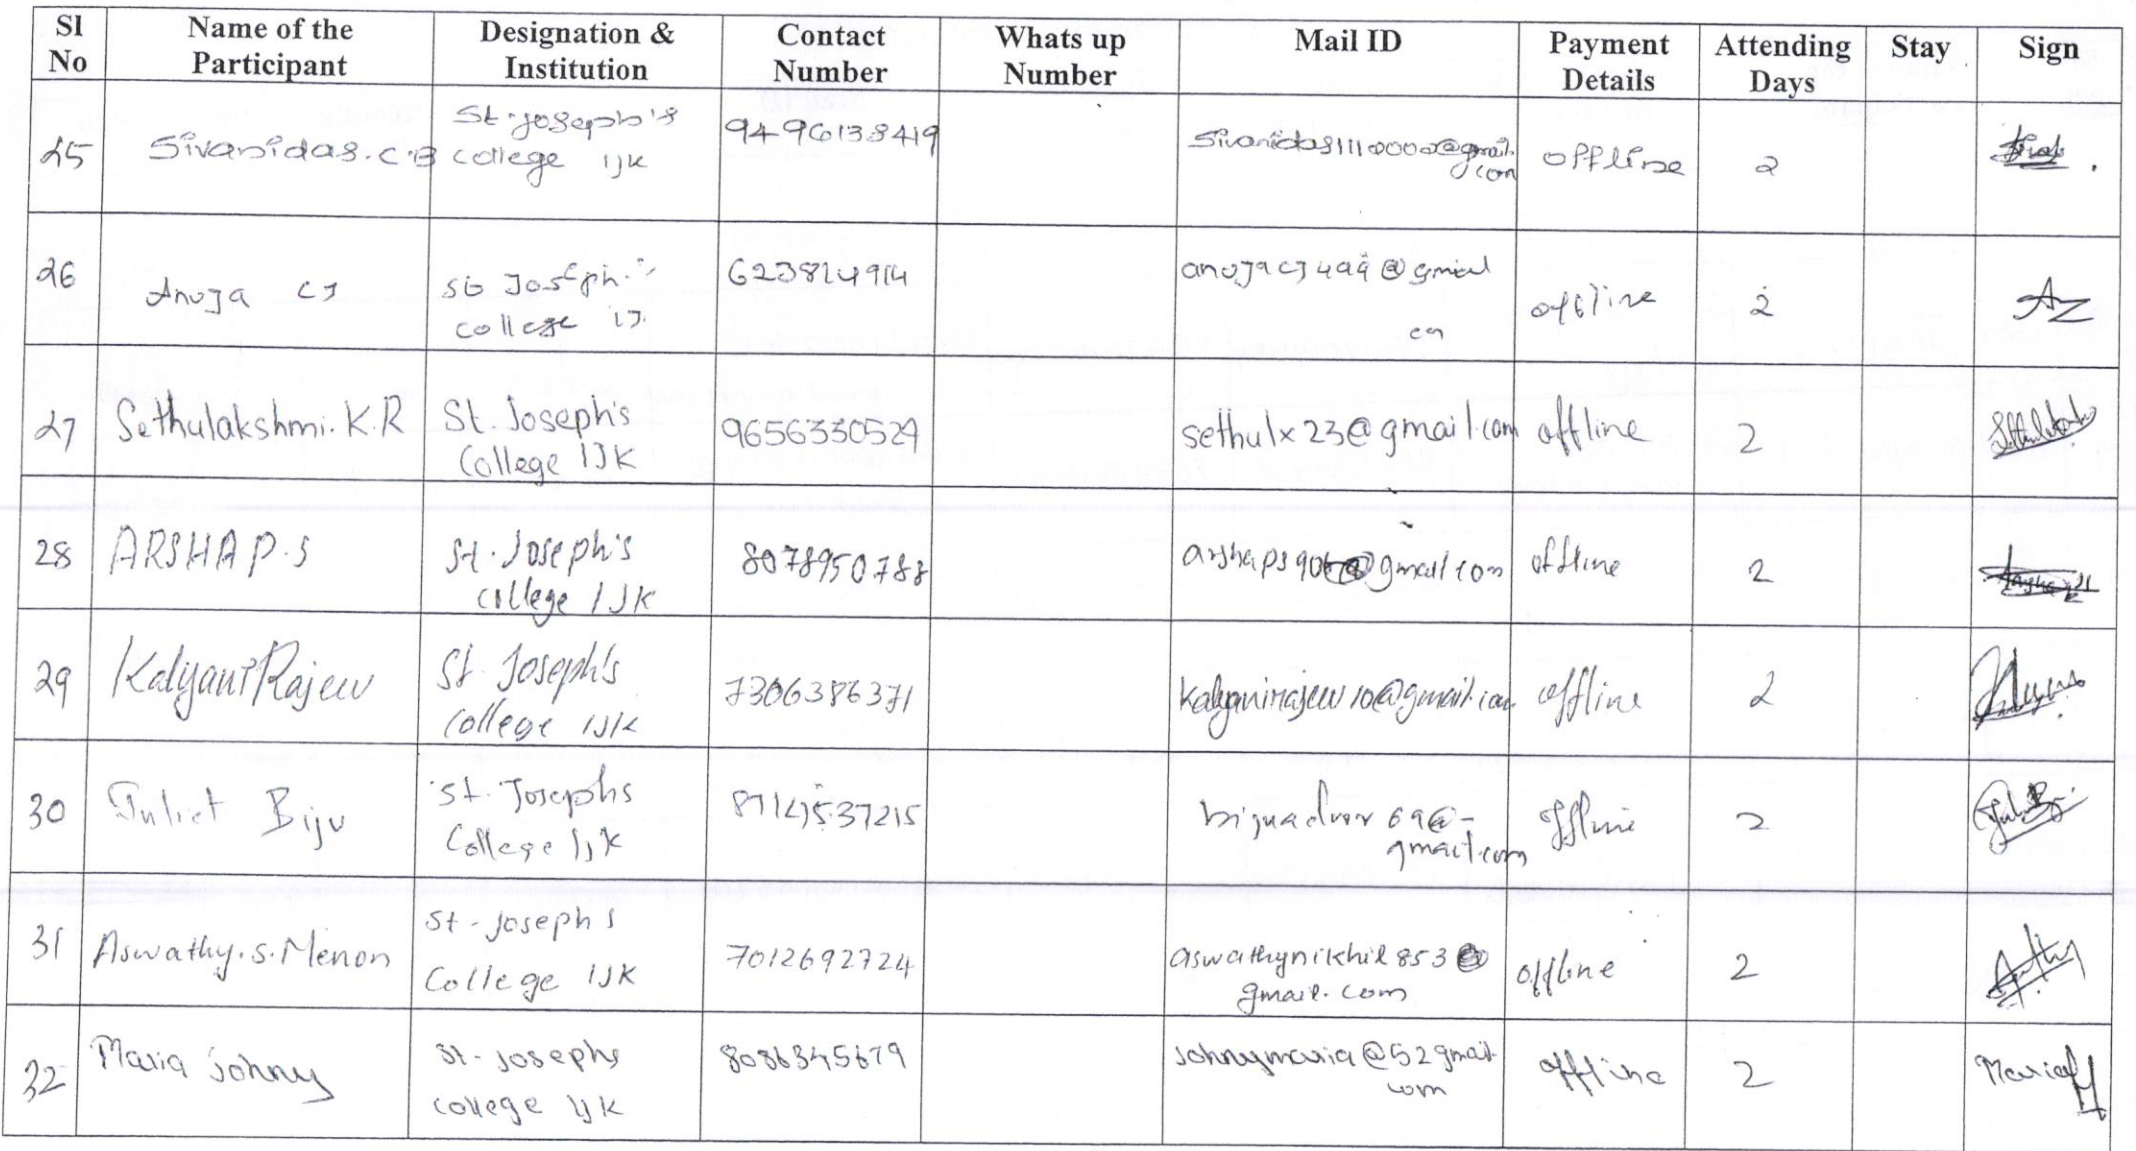 Sl No | Name of the Participant | Designation & Institution | Contact Number | Whats up Number | Mail ID | Payment Details | Attending Days | Stay | Sign
25 | Sivanidas.C.B | St. Joseph's college IJK | 9496138419 | | | offline | 2
26 | Anuja CJ | St Joseph's college IJ. | | | | offline | 2
27 | Sethulakshmi.K.R | St. Joseph's College IJK | 9656330529 | | sethulx23@gmail.com | offline | 2
28 | ARSHA P.S | St. Joseph's college IJK | 8078950788 | | | offline | 2
29 | Kalyani Rajeev | St. Joseph's College IJK | 7306386371 | | kalyanirajeev10@gmail.com | offline | 2
30 | Juliet Biju | St. Josephs College IJK | | | | offline | 2
31 | Aswathy.S.Menon | St. Josephs College IJK | 7012692724 | | aswathynikhil853@ gmail.com | offline | 2
32 | Maria Johny | St. Josephs college IJK | 8086345679 | | johnymaria@52gmail.com | offline | 2 | | Maria